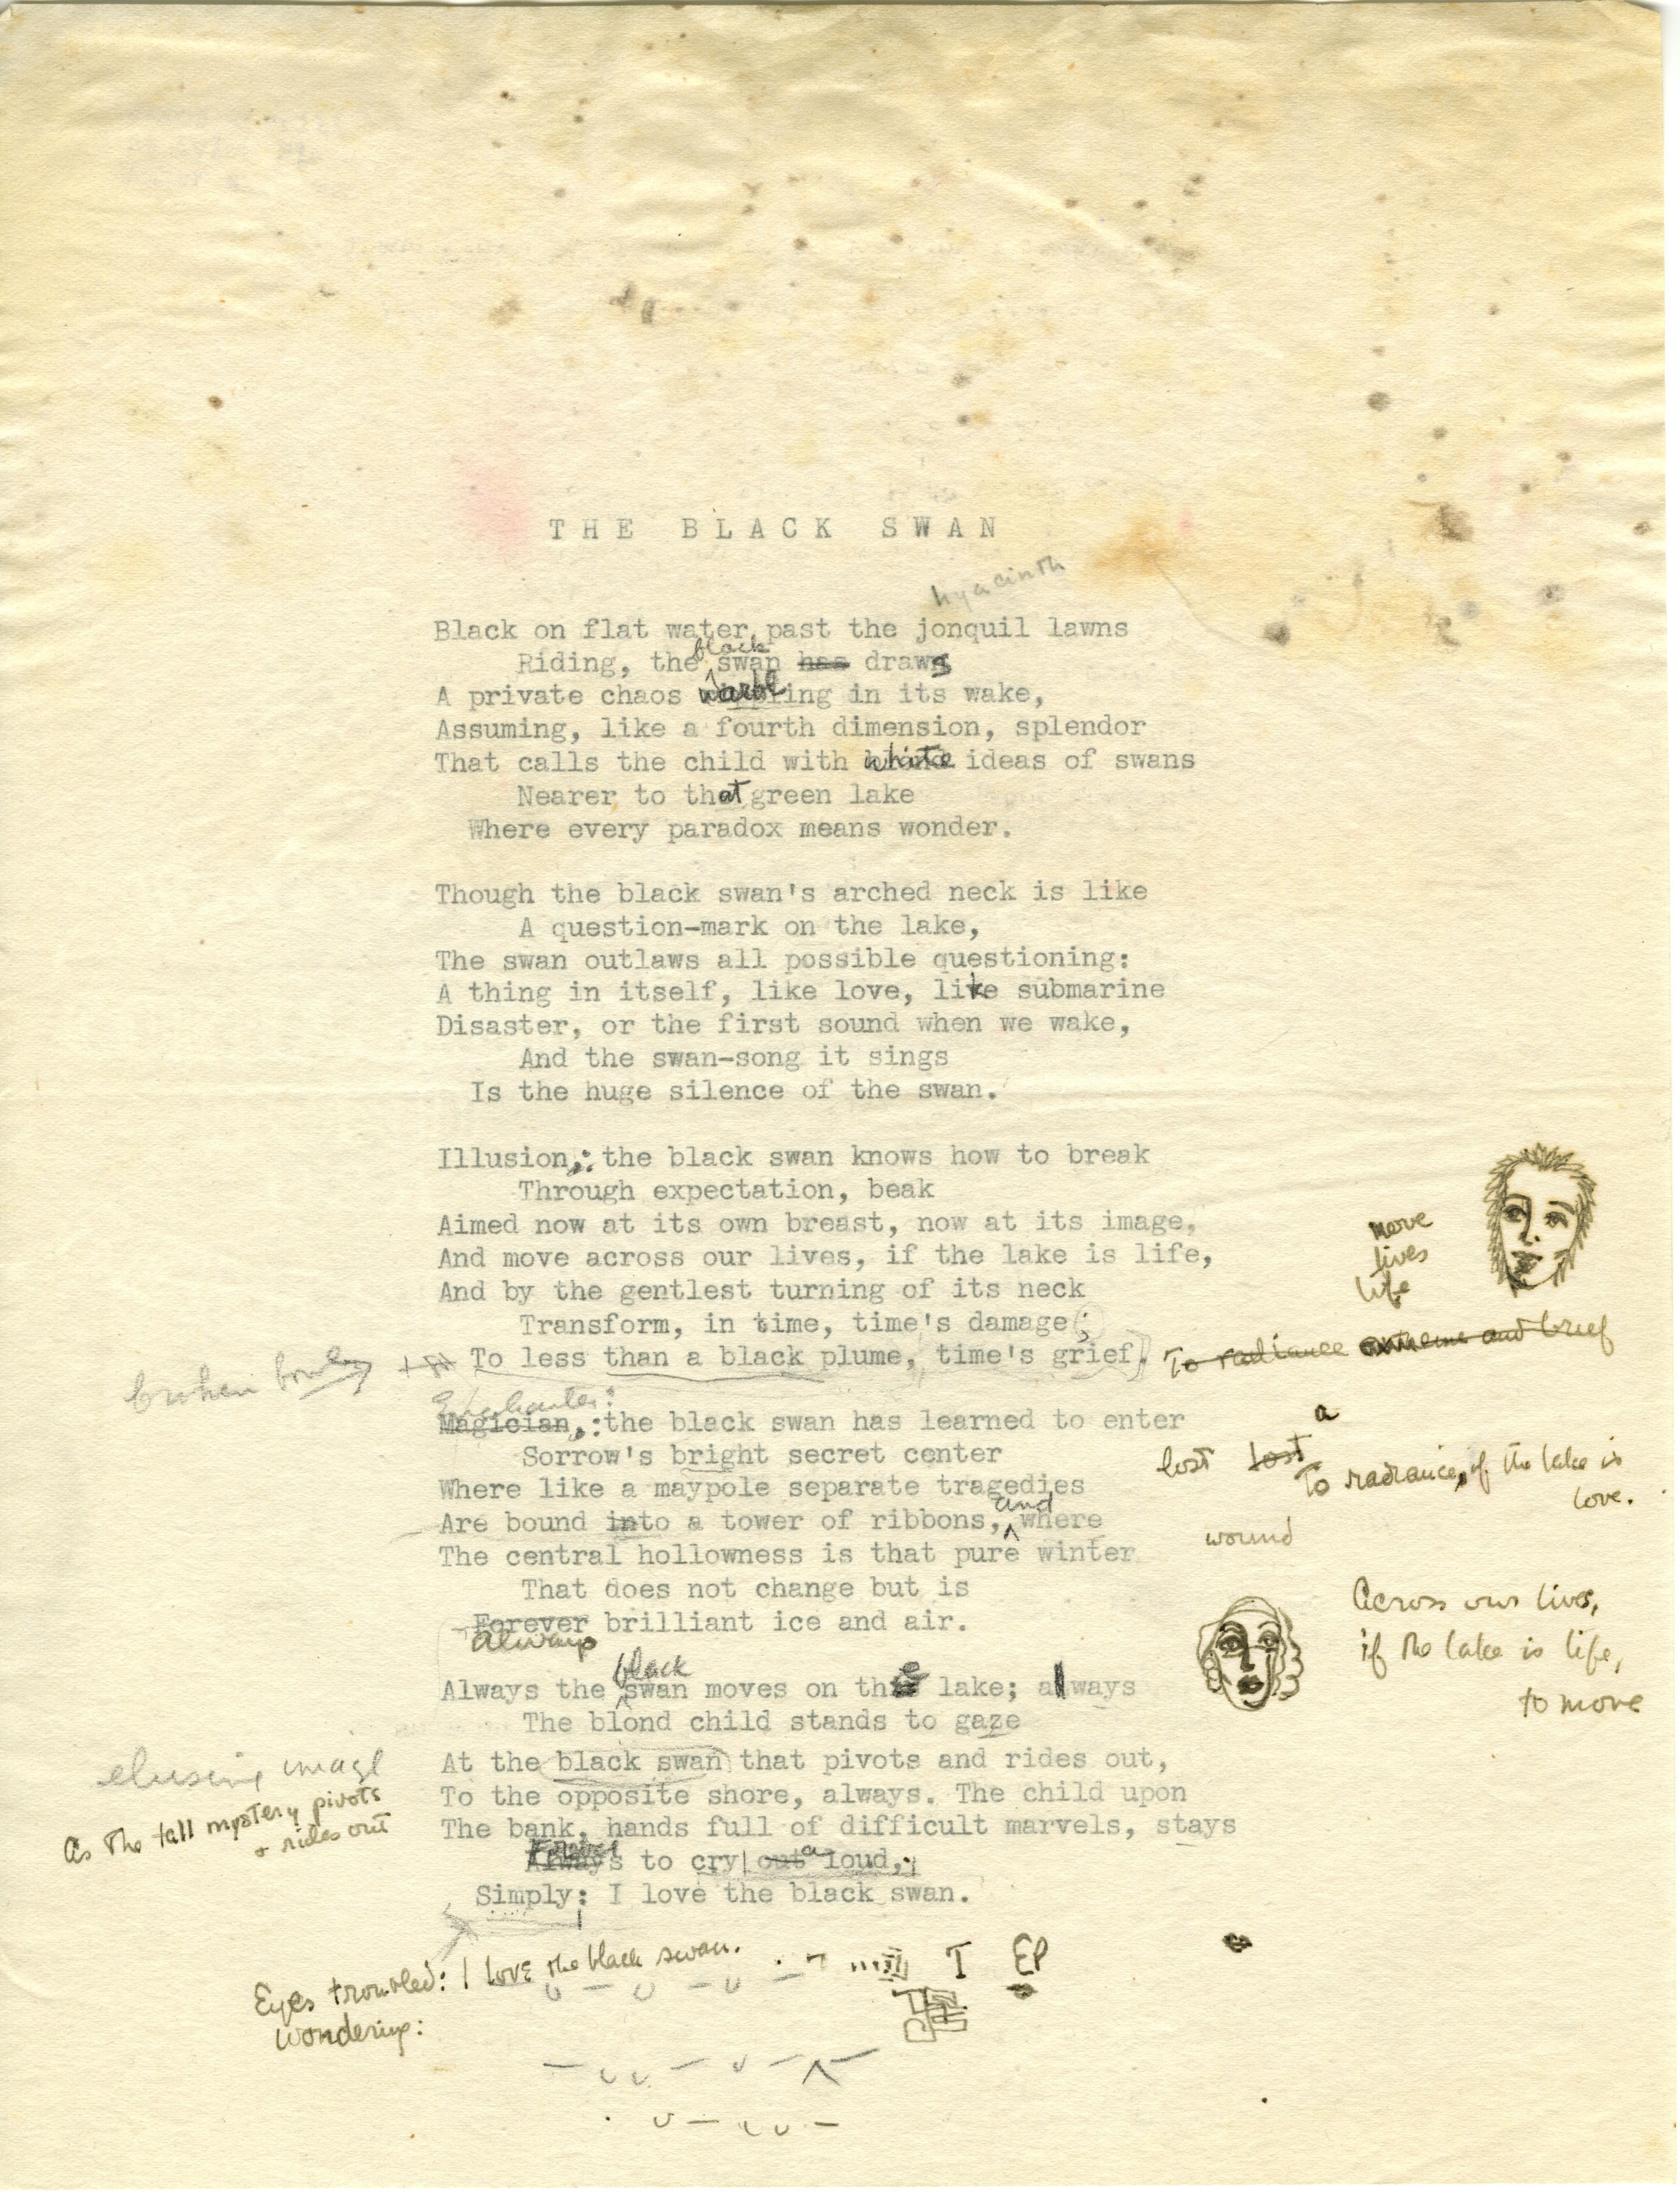 THE BLACK SWAN
hyacinth
Black on flat water past the jonquil lawns
black
Riding, the swan has draws
A private chaos warbling in its wake,
Assuming, like a fourth dimension, splendor
That calls the child with white ideas of swans
Nearer to that green lake
Where every paradox means wonder.
Though the black swan's arched neck is like
A question-mark on the lake,
The swan outlaws all possible questioning:
A thing in itself, like love, like submarine
Disaster, or the first sound when we wake,
And the swan-song it sings
Is the huge silence of the swan.
Illusion: the black swan knows how to break
Through expectation, beak
Aimed now at its own breast, now at its image,
And move across our lives, if the lake is life,
move
lives
life
And by the gentlest turning of its neck
Transform, in time, time's damage;
To less than a black plume, time's grief.
To radiance extreme and brief
broken
Enchanter:
Magician: the black swan has learned to enter
Sorrow's bright secret center
lost lost a
To radiance, if the lake is
love.
Where like a maypole separate tragedies
and
Are bound into a tower of ribbons, where
wound
The central hollowness is that pure winter
That does not change but is
Forever brilliant ice and air.
Always
Across our lives,
if the lake is life,
to move
black
Always the swan moves on the lake; always
The blond child stands to gaze
At the black swan that pivots and rides out,
elusive image
As the tall mystery pivots
+ rides out
To the opposite shore, always. The child upon
The bank, hands full of difficult marvels, stays
Always to cry out aloud,
Simply: I love the black swan.
Eyes troubled: I love the black swan.
Wondering:
T EP